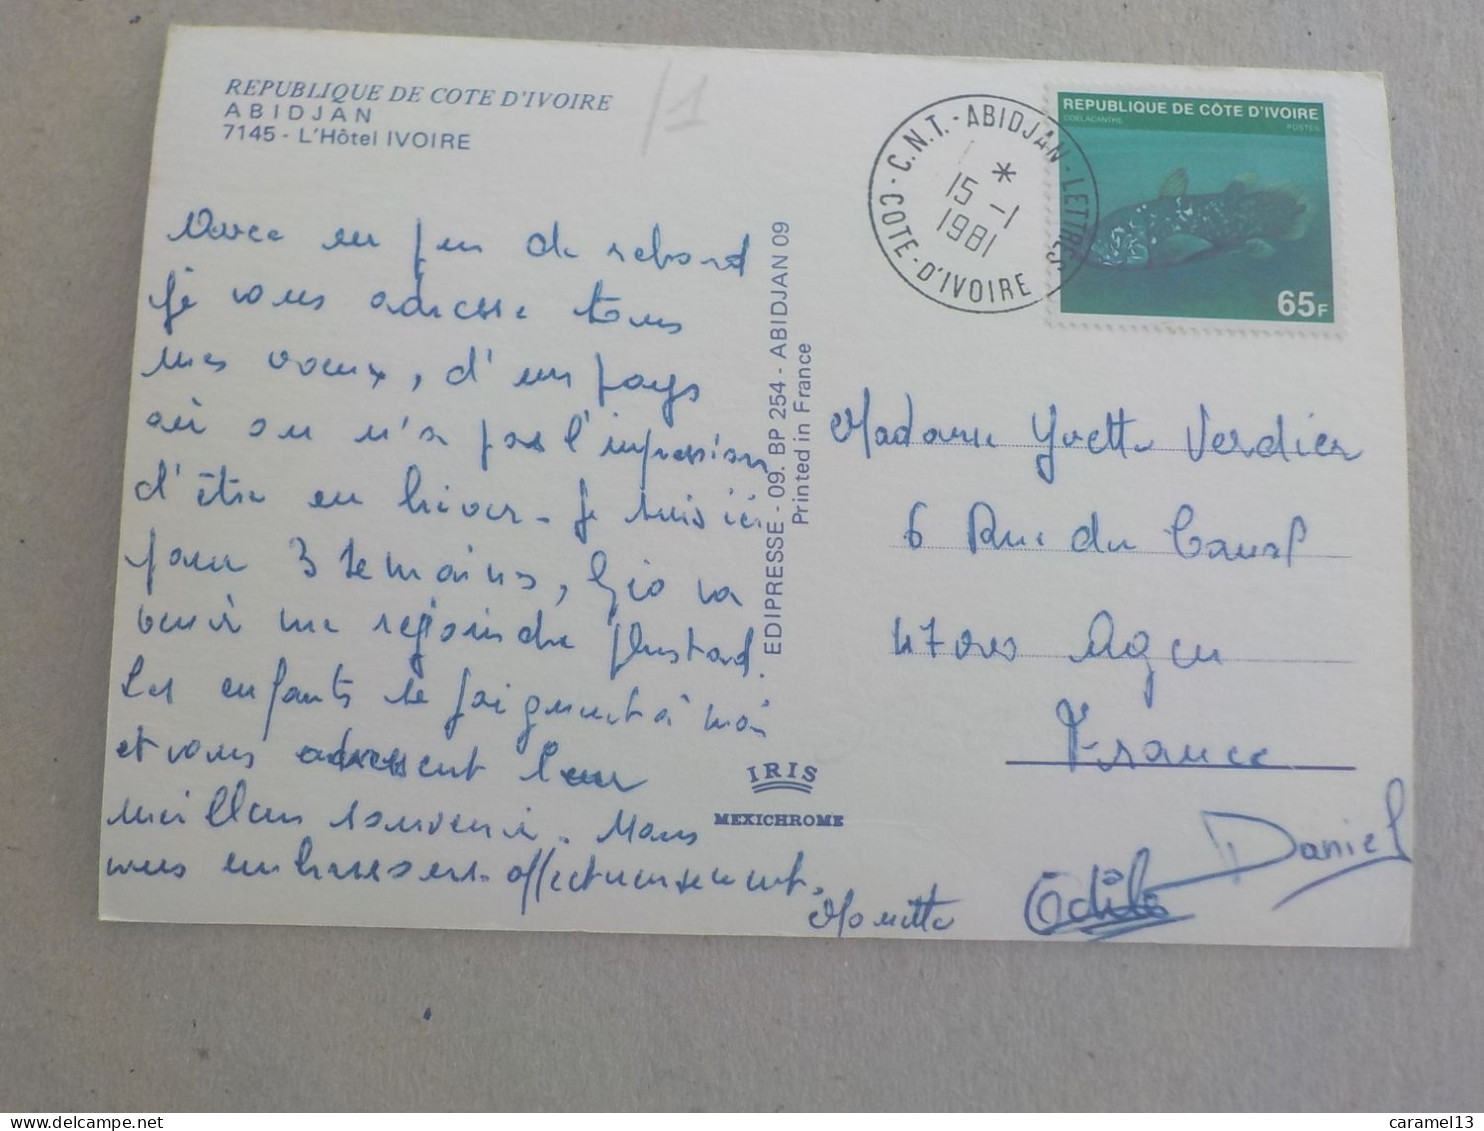 REPUBLIQUE DE COTE D'IVOIRE
ABIDJAN
7145 - L'Hôtel IVOIRE
/1
Avec un peu de rebord
je vous adresse tous
mes voeux, d'un pays
où on n'a pas l'impression
d'être en hiver - je suis ici
pour 3 semaines, Gio va
venir me rejoindre plus tard.
Les enfants se joignent à moi
et vous adressent leur
meilleur souvenir. Nous
vous embrassons affectueusement.
Monette
Odile
Daniel
EDIPRESSE - 09. BP 254 - ABIDJAN 09
Printed in France
IRIS
MEXICHROME
C.N.T. - ABIDJAN - LETTRES
*
15 -1
1981
COTE-D'IVOIRE
REPUBLIQUE DE CÔTE D'IVOIRE
COELACANTHE
POSTES
65F
Madame Yvette Verdier
6 Rue du Canal
47000 Agen
France
caramel13